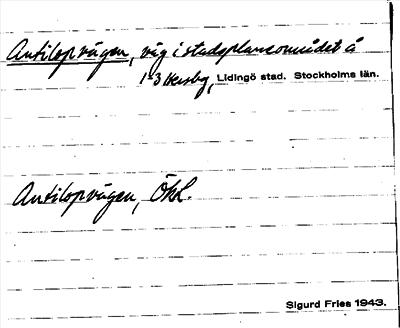 Antilopvägen, väg i stadsplaneområdet å
1-3 Hersby, Lidingö stad. Stockholms län.
Antilopvägen, Ökl.
Sigurd Fries 1943.